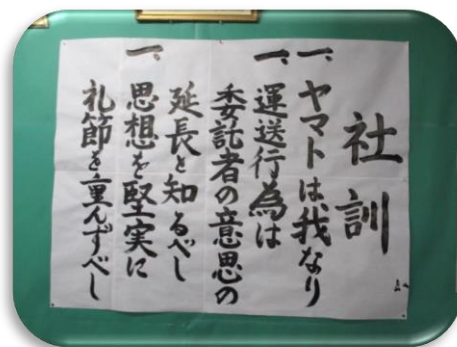 社訓
一、ヤマトは我なり
一、運送行為は
委託者の意思の
延長と知るべし
一、思想を堅実に
礼節を重んずべし